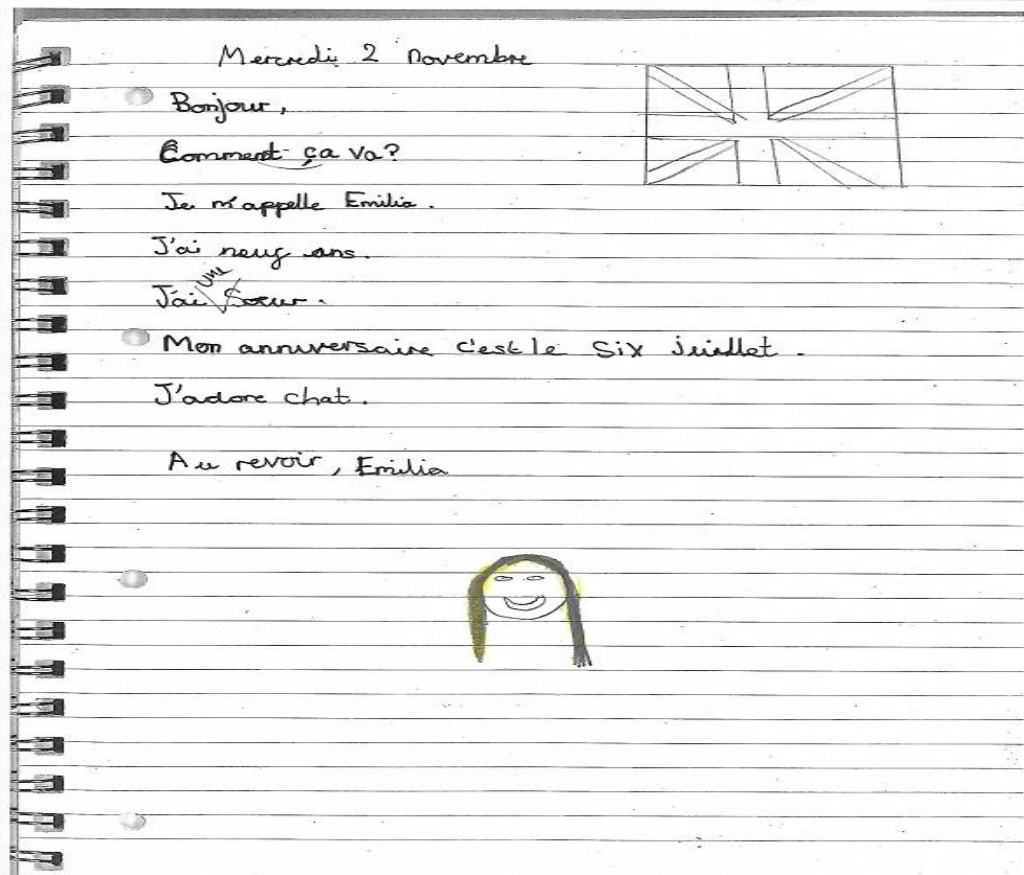 Mercredi 2 novembre
Bonjour,
Comment ça va?
Je m'appelle Emilia.
J'ai neuf ans.
J'ai une Soeur.
Mon anniversaire c'est le six juillet.
J'adore chat.
Au revoir, Emilia